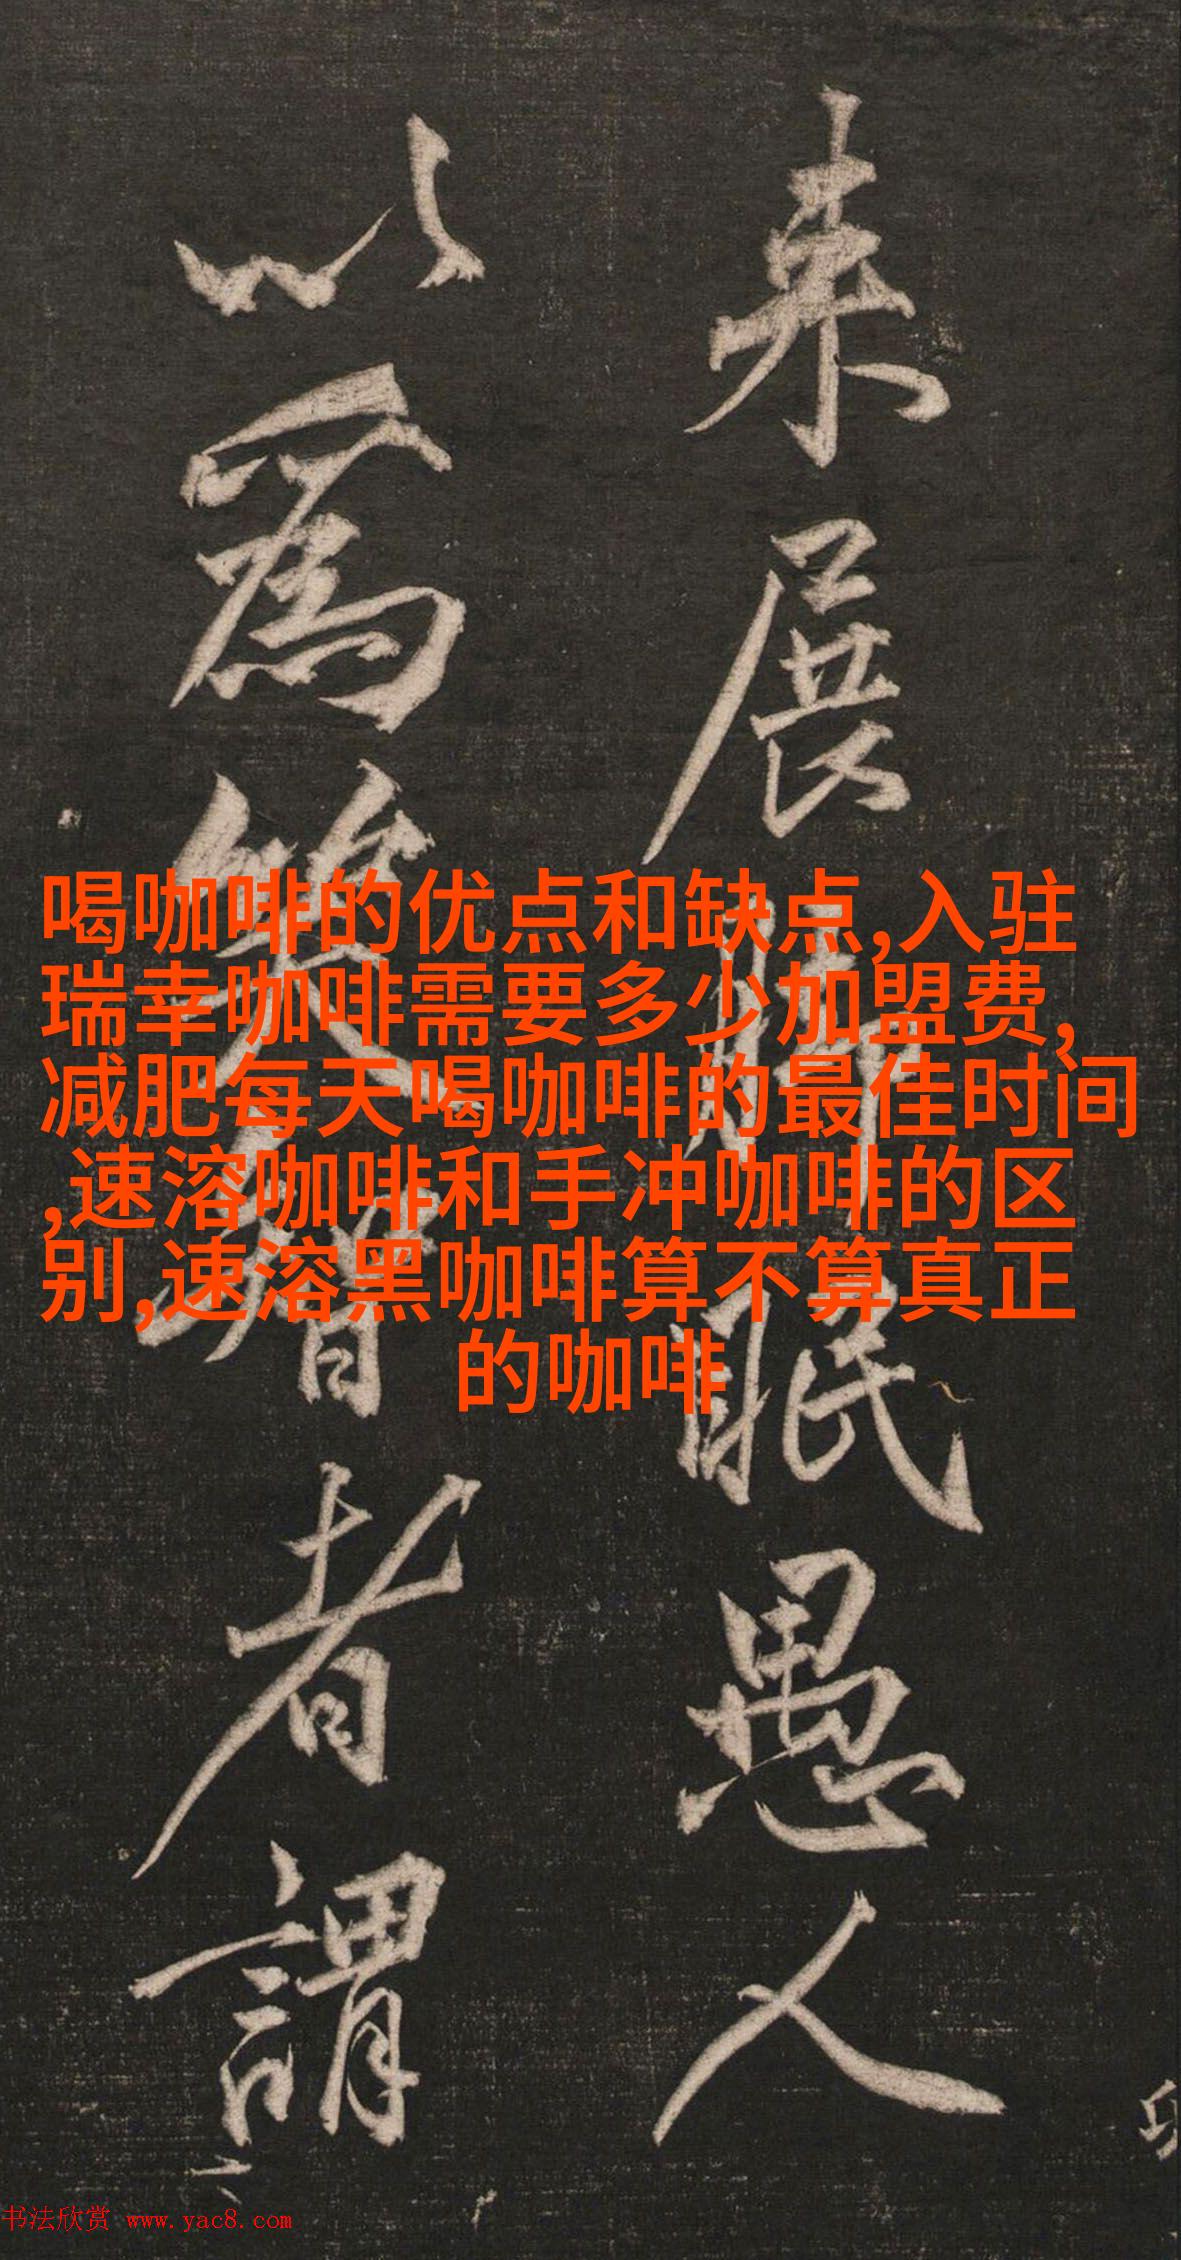 来展脚眠愚人
以為笑智者謂
喝咖啡的优点和缺点,入驻
瑞幸咖啡需要多少加盟费,
减肥每天喝咖啡的最佳时间
,速溶咖啡和手冲咖啡的区
别,速溶黑咖啡算不算真正
的咖啡
书法欣赏 www.yac8.com